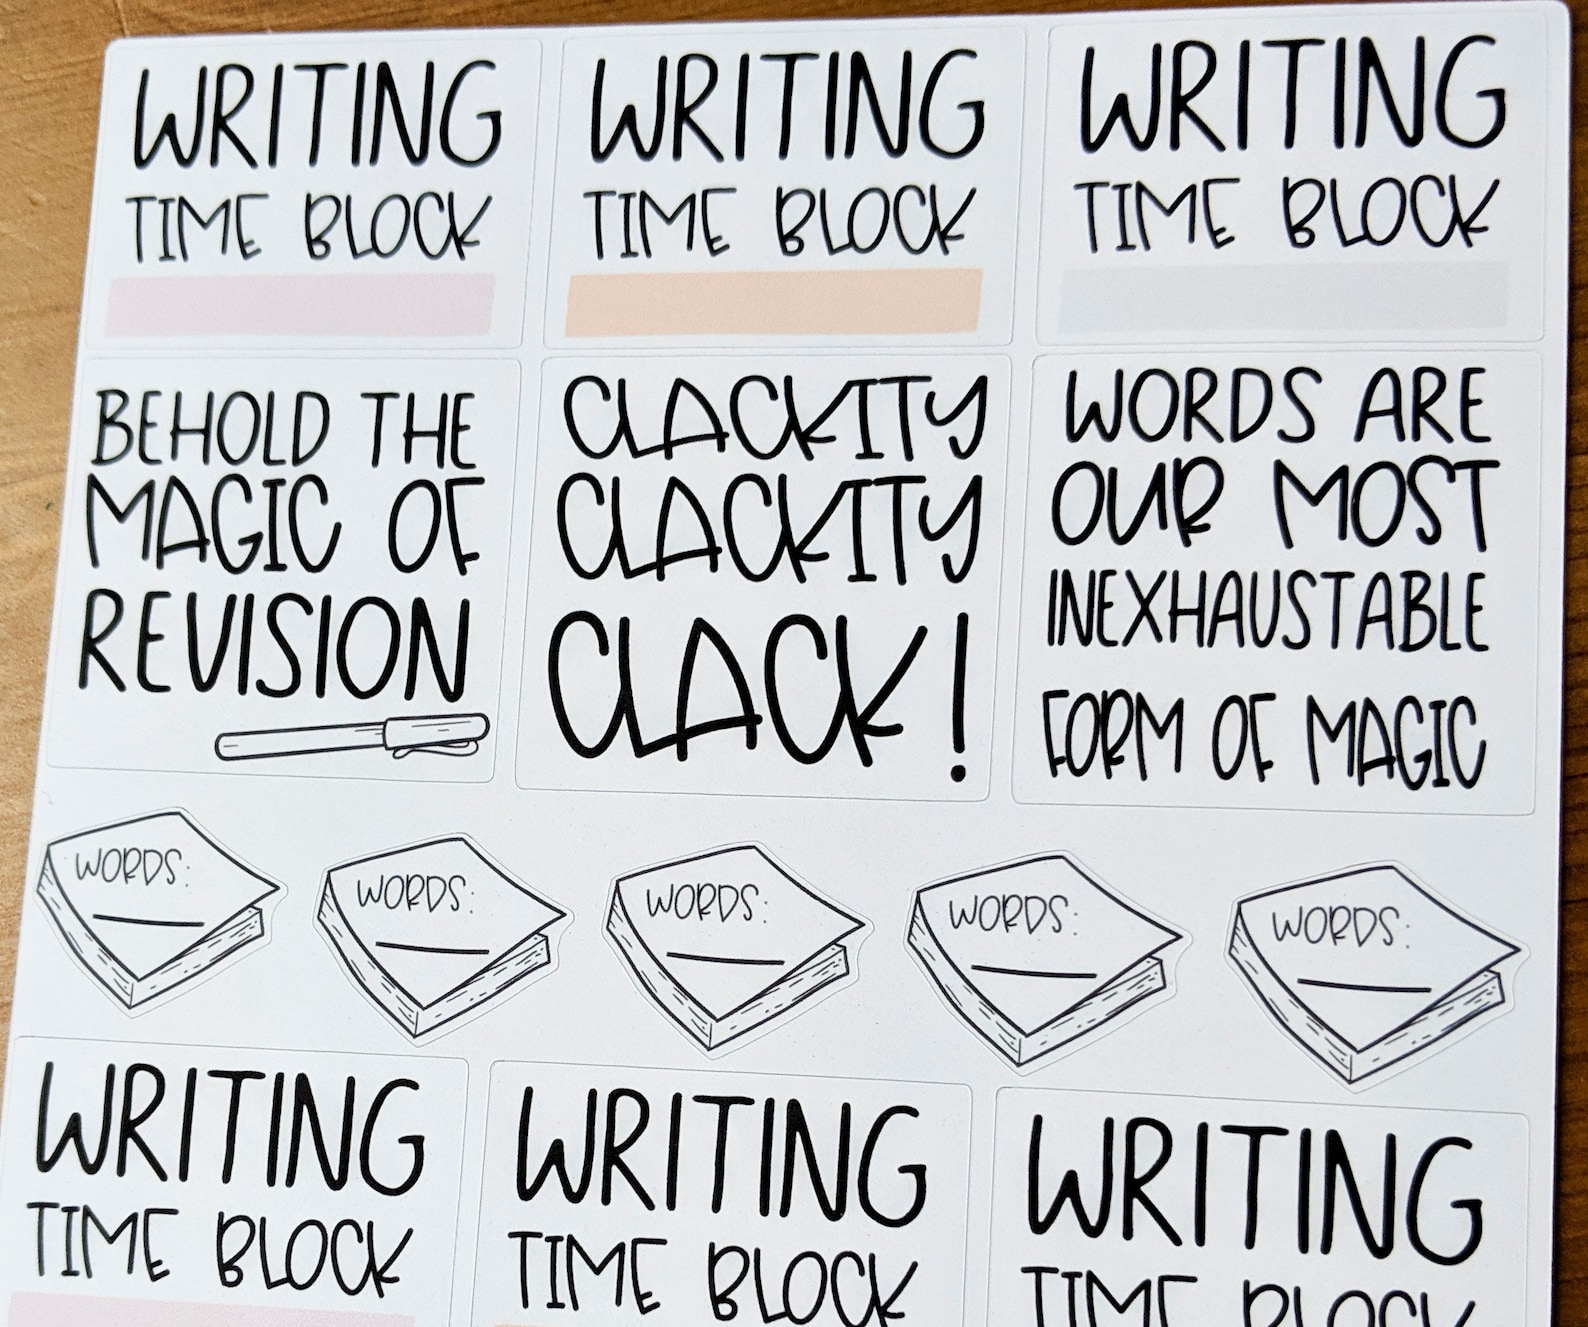 WRITING
TIME BLOCK
WRITING
TIME BLOCK
WRITING
TIME BLOCK
BEHOLD THE
MAGIC OF
REVISION
CLACKITY
CLACKITY
CLACK!
WORDS ARE
OUR MOST
INEXHAUSTABLE
FORM OF MAGIC
WORDS:
WORDS:
WORDS:
WORDS:
WORDS:
WRITING
TIME BLOCK
WRITING
TIME BLOCK
WRITING
TIME BLOCK